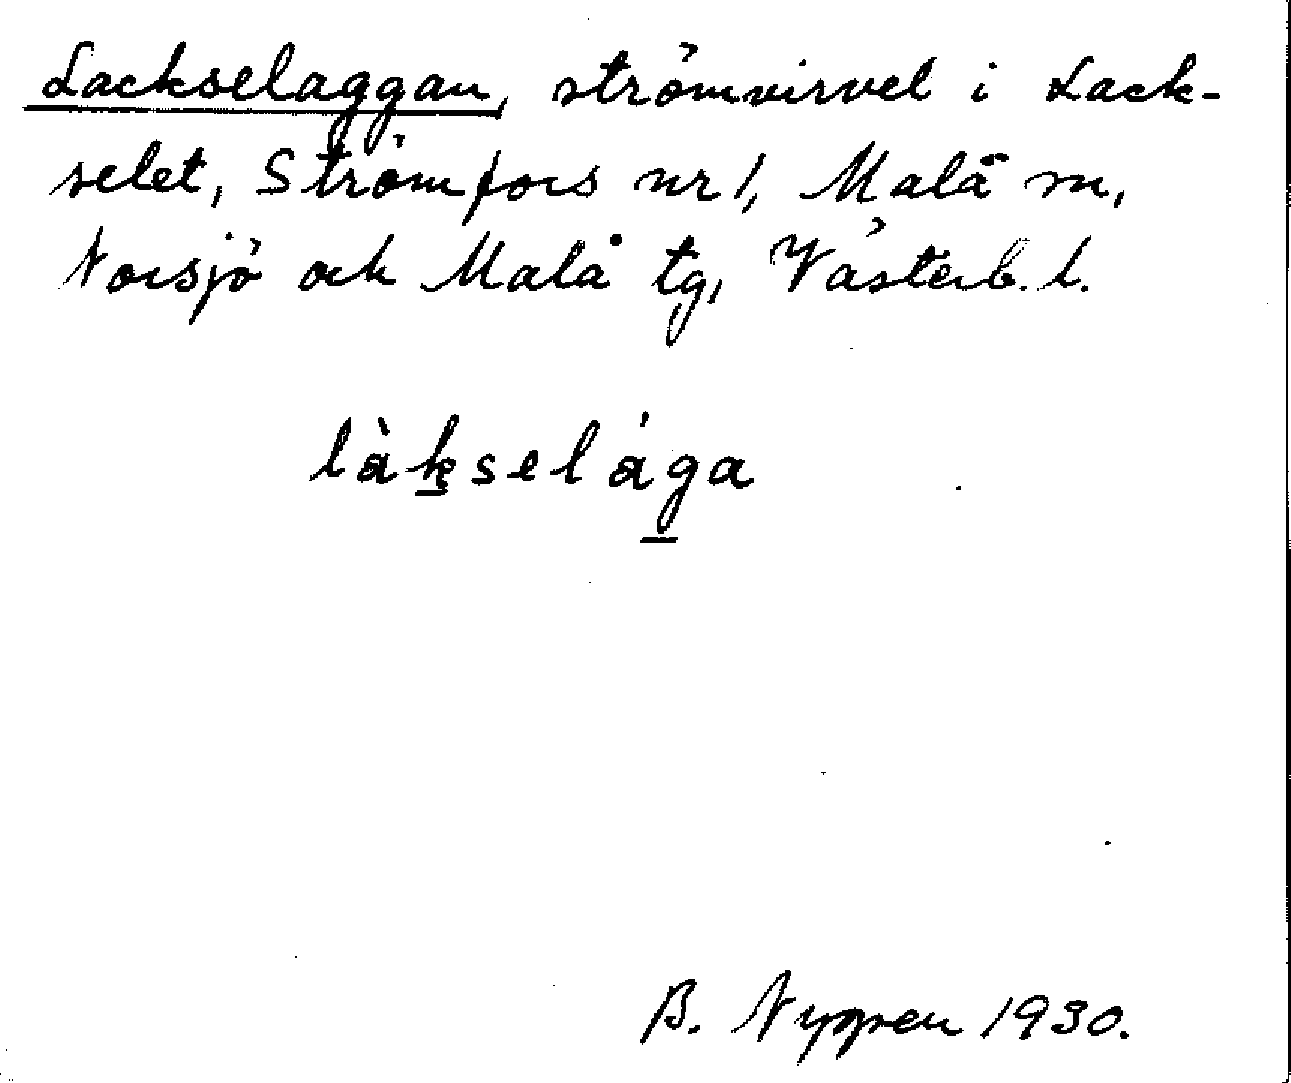 Lackselaggan, strömvirvel i Lack-
selet, Strömfors nr 1, Malå sn,
Norsjö och Malå tg, Västerb. l.
làk̲selág̲a
B. Nygren 1930.